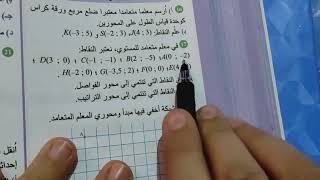 أ) أرسم معلما متعامدا معتبرا ضلع مربع ورقة كراس
كوحدة قياس الطول على المحورين.
علّم النقاط: K(−3 ; 5) ، S(−2 ; 3) ، J(4 ; 3)
17 في معلم متعامد للمستوي، نعتبر النقاط:
، D(3 ; 0) ، C(−1 ; −1) ، B(2 ; −5) ، A(0 ; −2)
H(−2 ; 0) ، G(−3,5 ; 2) ، F(0 ; 0) ، E(4
النقاط التي تنتمي إلى محور الفواصل.
النقاط التي تنتمي إلى محور التراتيب.
أخفي فيها مبدأ ومحوري المعلم المتعامد.
21
أنقل